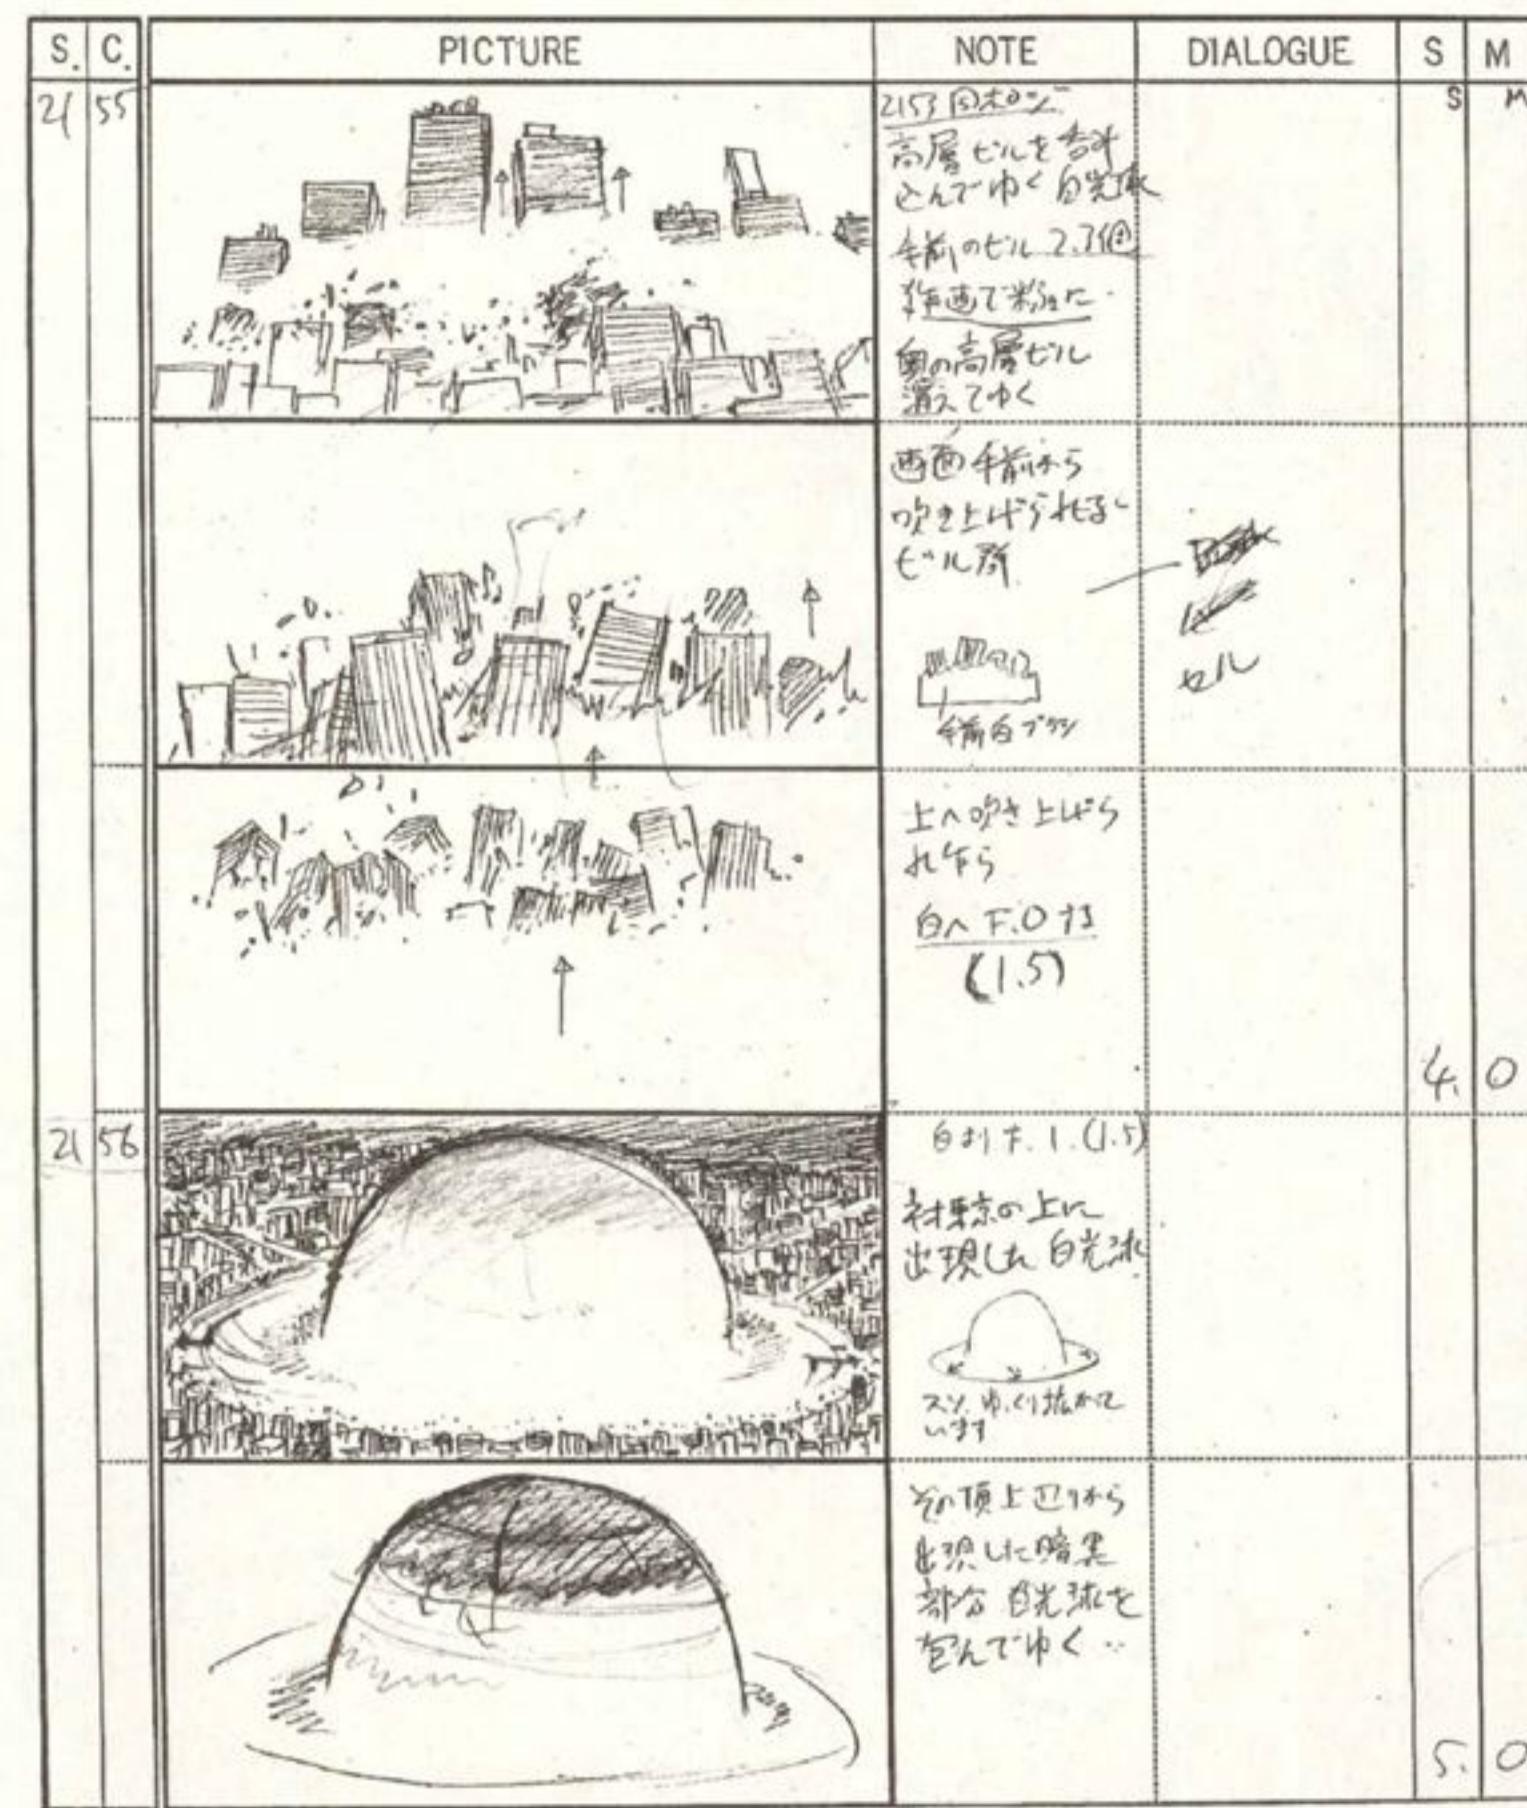 S. C. PICTURE NOTE DIALOGUE S M
S M
21 55
2153 同ポジ
高層ビルを呑み
込んでゆく白光球
手前のビル 2.3個
作画で粉々に
奥の高層ビル
消えてゆく
画面手前から
吹き上げられる
ビル群
セル
手前白ブラシ
上へ吹き上げら
れ乍ら
白へF.Oする
(1.5)
4. 0
21 56
白よりF.I.(1.5)
東京の上に
出現した白光球
スソ、ゆっくり拡がって
います
その頂上辺りから
出現した暗黒
部分 白光球を
包んでゆく‥
5. 0